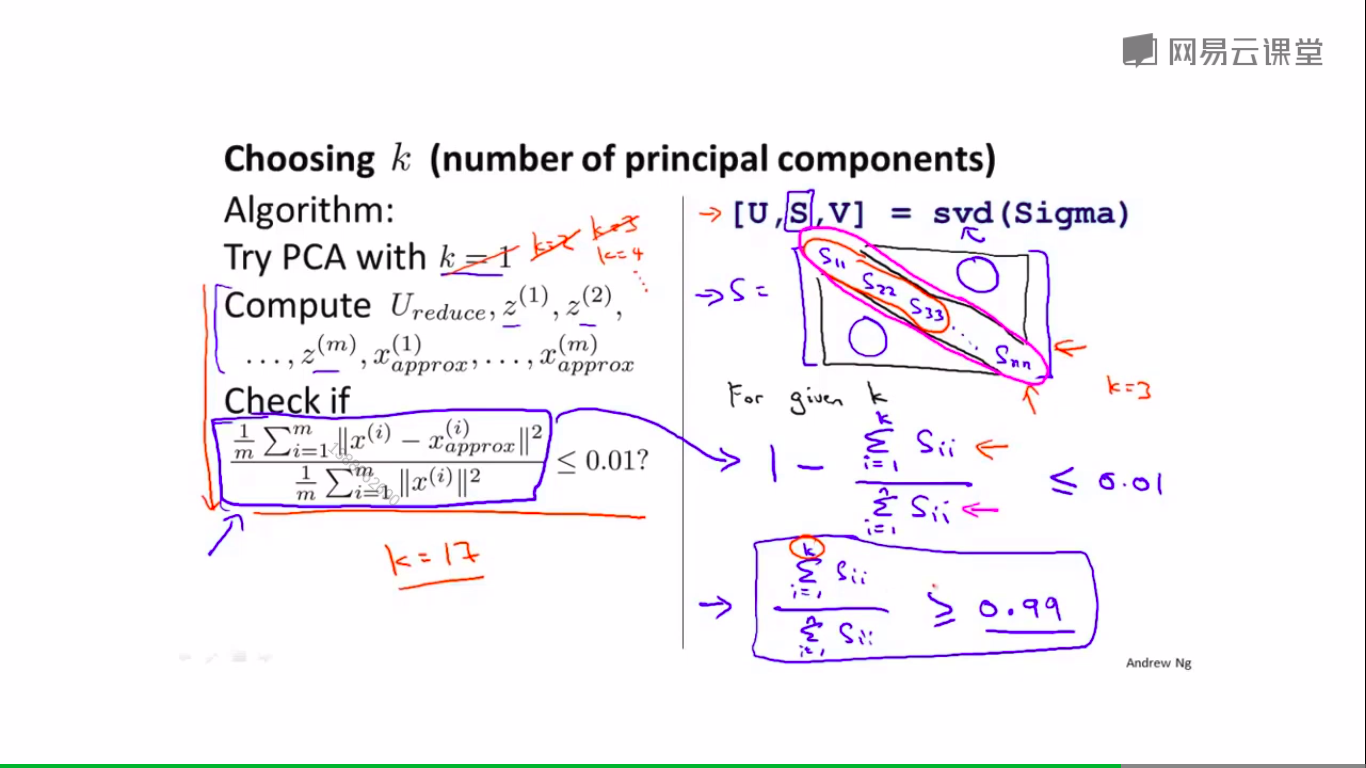 网易云课堂
Choosing k (number of principal components)
Algorithm:
Try PCA with k = 1 k=2 k=3
k=4
Compute U_reduce, z^(1), z^(2),
..., z^(m), x_approx^(1), ..., x_approx^(m)
Check if
\frac{\frac{1}{m} \sum_{i=1}^{m} ||x^(i) − x_approx^(i)||^2}{\frac{1}{m} \sum_{i=1}^{m} ||x^(i)||^2} ≤ 0.01?
k = 17
→ [U,S,V] = svd(Sigma)
→ S =
S11
S22
S33
...
Snn
0
0
For given k
k=3
1 − \frac{\sum_{i=1}^{k} Sii}{\sum_{i=1}^{n} Sii} ≤ 0.01
→ \frac{\sum_{i=1}^{k} Sii}{\sum_{i=1}^{n} Sii} ≥ 0.99
Andrew Ng